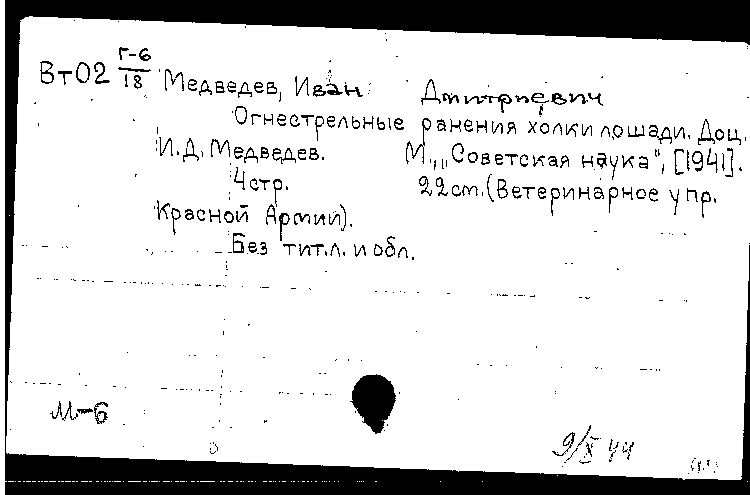 Вт02 Г-6/18 Медведев, Иван Дмитриевич
Огнестрельные ранения холки лошади. Доц.
И.Д. Медведев. М., „Советская наука", [1941].
4стр. 22см. (Ветеринарное упр.
Красной Армии).
Без тит.л. и обл.
М-6
9/X 44